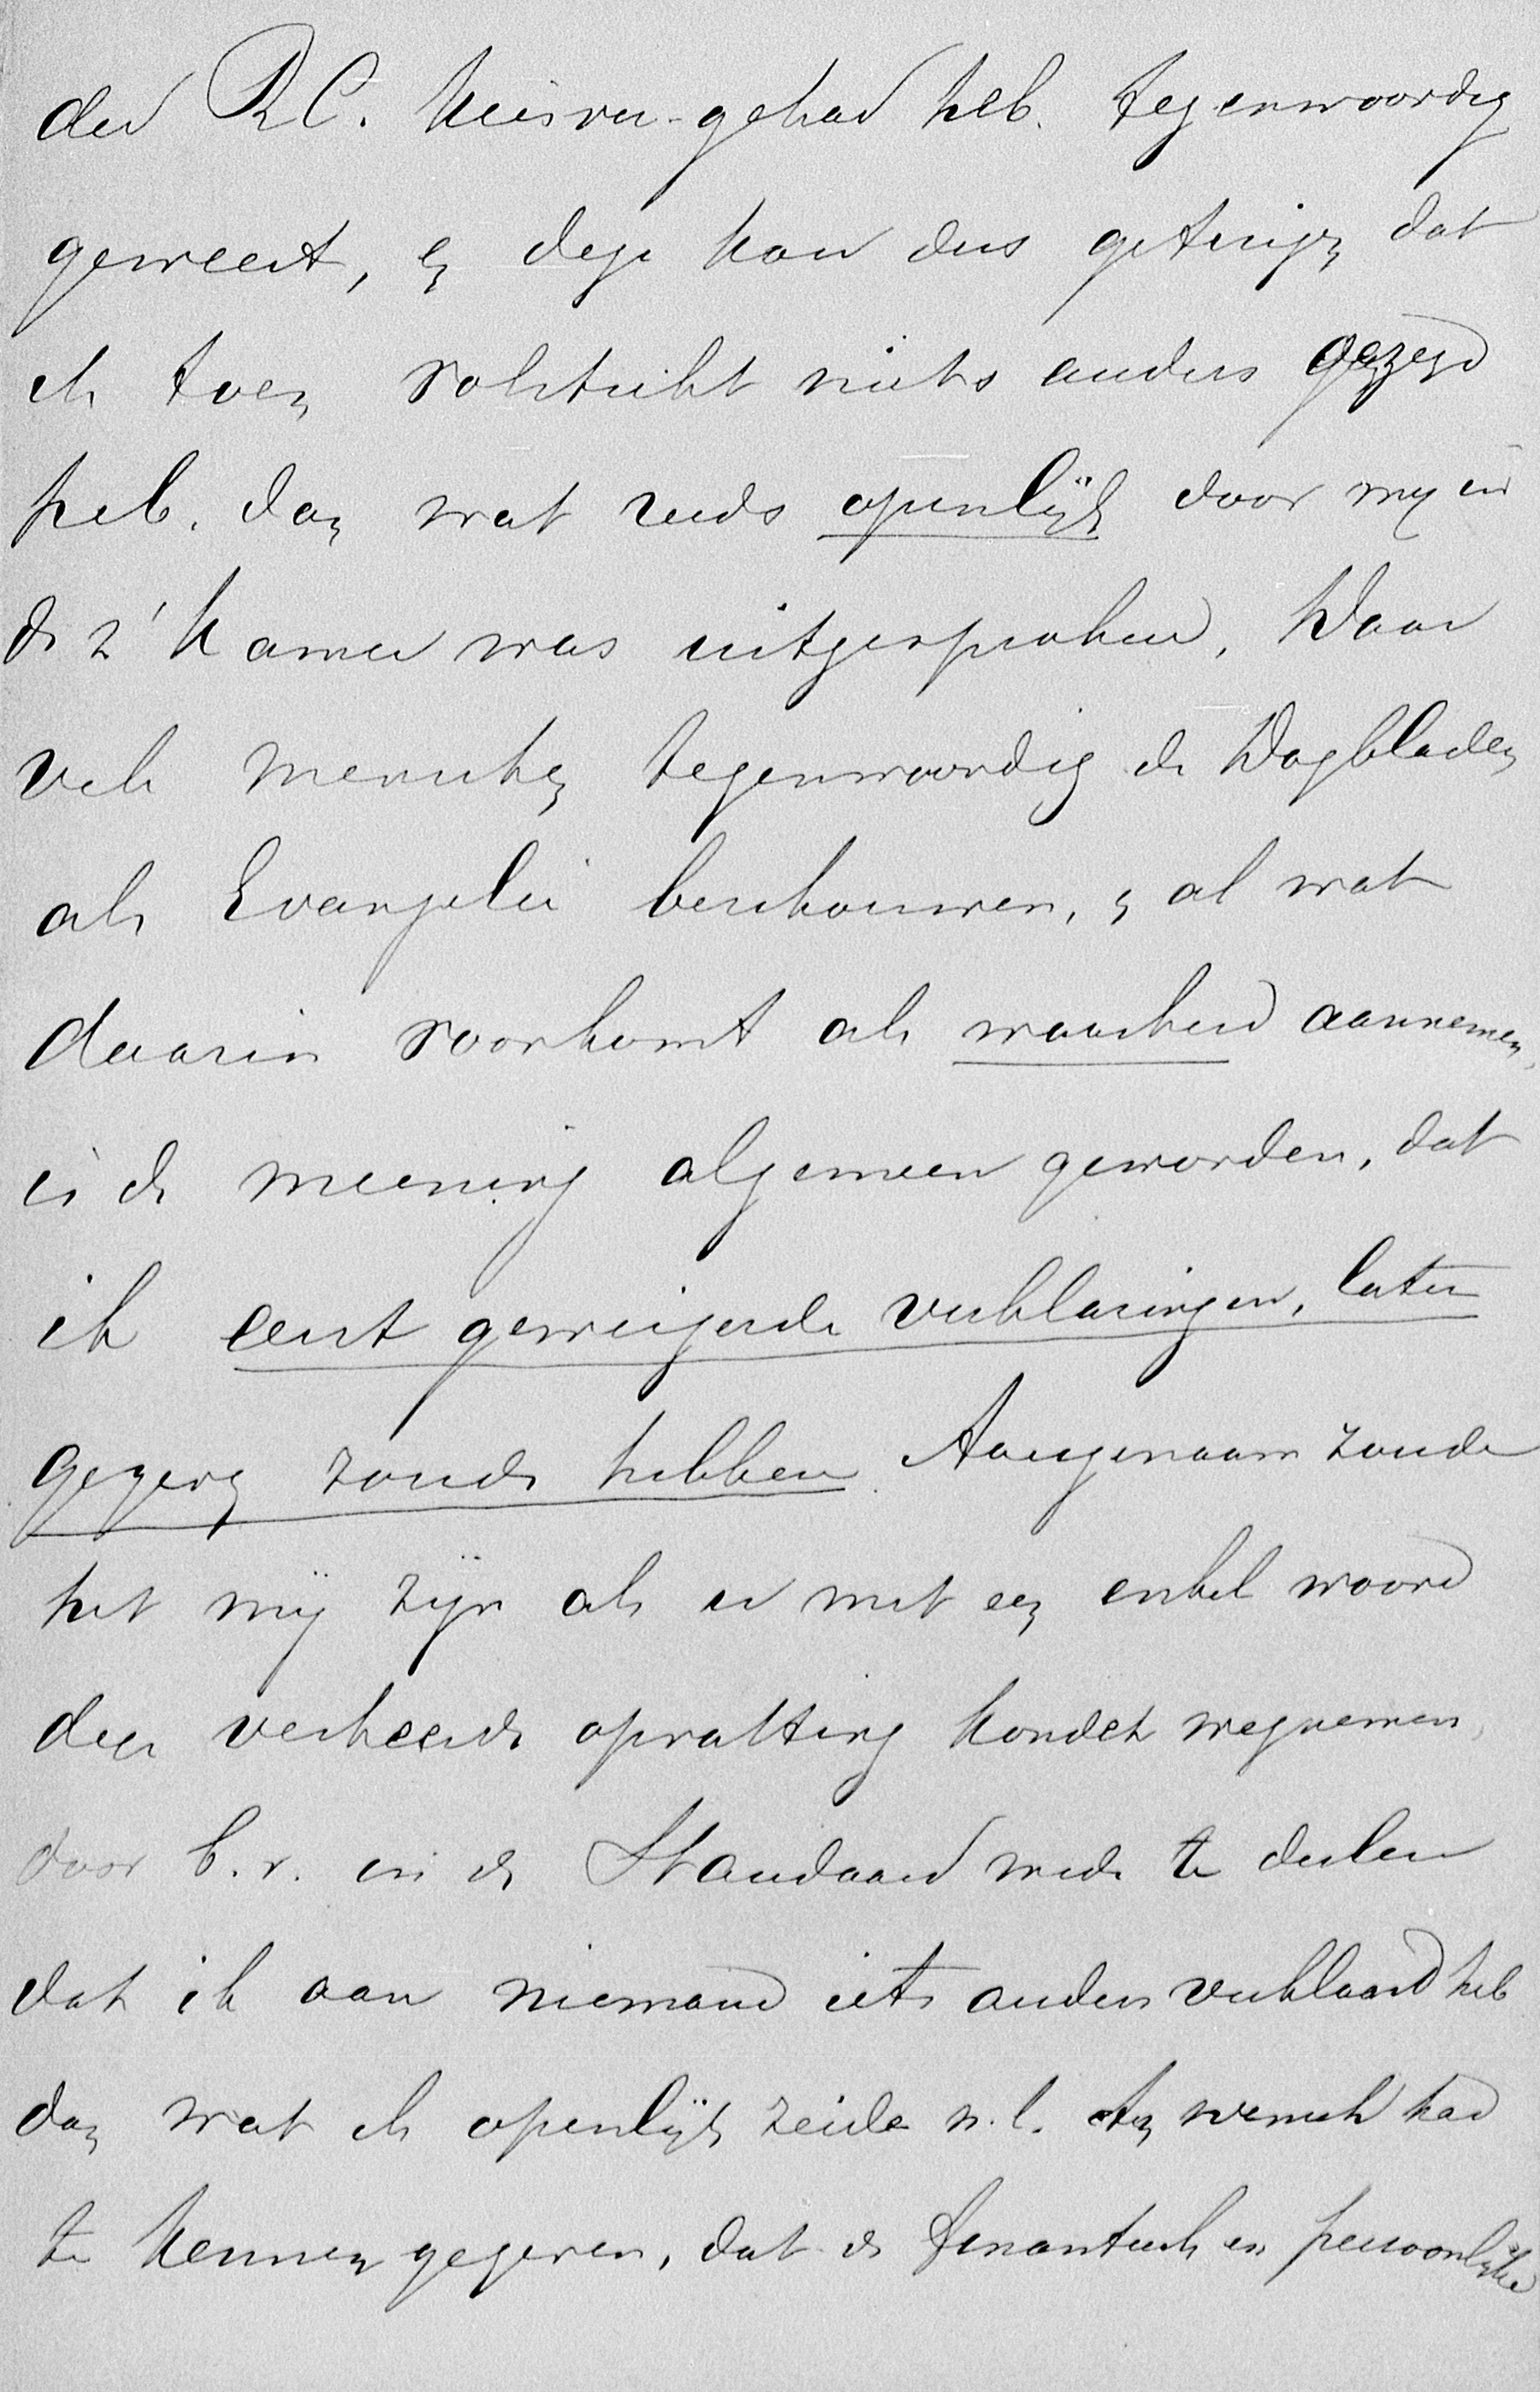 der R.C. Kiesver. gehad heb. tegenwoordig
geweest, en deze kan dus getuigen dat
ik toen volstrekt niets anders gezegd
heb. dan wat reeds openlijk door mij in
de 2e Kamer was uitgesproken. Daar
vele menschen tegenwoordig de Dagbladen
als Evangelie beschouwen, en al wat
daarin voorkomt als waarheid aannemen,
is de meening algemeen geworden, dat
ik eerst geweigerde verklaringen, later
gegeven zoude hebben. Aangenaam zoude
het mij zijn als u met een enkel woord
deze verkeerde opvatting kondet wegnemen,
door b.v. in de Standaard mede te deelen
dat ik aan niemand iets anders verklaard heb
dan wat ik openlijk zeide n.l. den wensch had
te kennen gegeven, dat de finantieele en persoonlijke